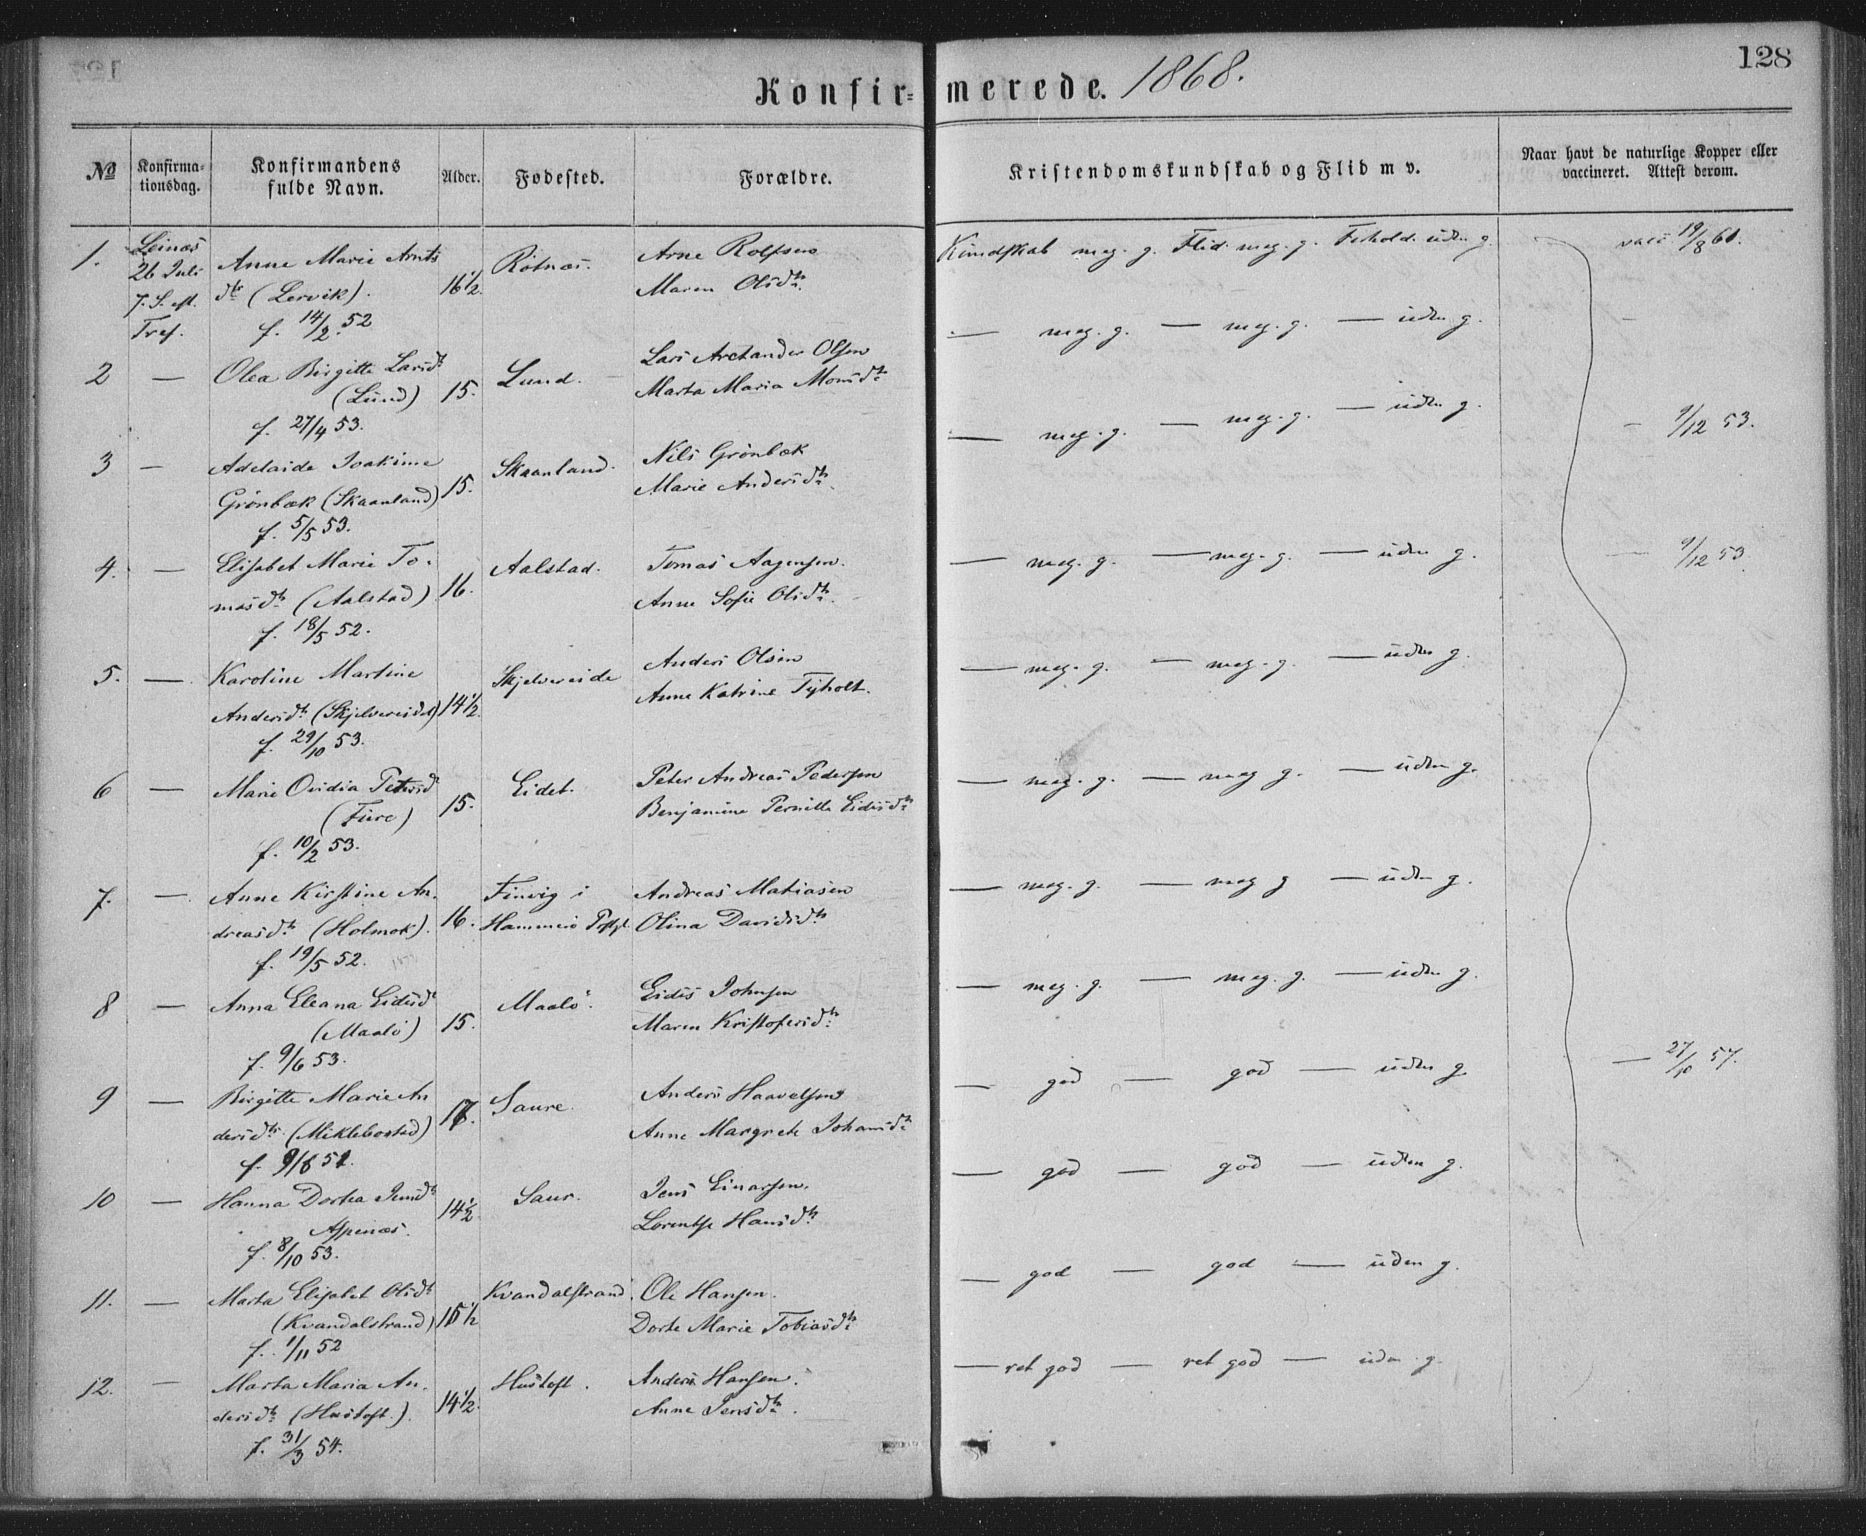 128
Konfirmerede. 1868.
№ Konfirmationsdag. Konfirmandens fulde Navn. Alder. Fødested. Forældre. Kristendomskundskab og Flid m v. Naar havt de naturlige Kopper eller vaccineret. Attest derom.
1. Leinæs 26 Juli 7. S. eft. Tref. Anne Marie Arnts dtr (Lervik). f. 14/2 52 16 1/2. Rotnæs. Arne Rolfsen Maren Olsdtr. Kundskab meg. g. Flid. meg. g. Forhold. uden g. vacc 19/8 60.
2 — Olea Birgitte Larsdt (Lund) f. 27/4 53. 15. Lund. Lars Archander Olsen Marta Maria Monsdtr — meg. g. — meg. g. — uden g.
3 — Adelaide Joakime Grønbæk (Skaanland) f. 5/5 53. 15. Skaanland. Nils Grønbæk Marie Andersdtr. — meg. g. — meg. g. — uden g. — 9/12 53.
4. — Elisabet Marie To- masdtr (Aalstad) f. 18/5 52. 16. Aalstad. Tomas Aagensen. Anne Sofie Olsdtr. — meg. g. — meg. g. — uden g. — 9/12 53.
5. — Karoline Martine Andersdtr (Skjelvereidet) f. 29/10 53. 14 1/2. Skjelvereide Anders Olsen Anne Katrine Tyholt. — meg. g. — meg. g. — uden g.
6 — Marie Ovidia Petersd (Fure) f. 10/2 53. 15. Eidet. Peter Andreas Pedersen Benjamine Pernille Eidisdtr — meg. g. — meg g. — uden g.
7. — Anne Kirstine An- dreasdtr (Holmok). f. 19/5 52. 16. Finvig i Hammerø Pstgl. Andreas Matiasen Olina Davidsdtr — meg. g. — meg g — uden g.
8 — Anna Eleana Eidisdt (Maalø) f. 9/6 53. 15. Maalø. Eidis Johnsen Maren Kristofersdtr — meg. g. — meg. g. — uden g.
9 — Birgitte Marie An dersdtr (Miklebostad) f. 9/8 51. 17. Saure. Anders Haavelsen Anne Margrete Johansdtr — god — god — uden g. — 27/10 57.
10 — Hanna Dortea Jensdt Aspenæs. f. 8/10 53. 14 1/2 Saur. Jens Einarsen. Lorentse Hansdtr — god — god — uden g.
11. — Marta Elisabet Olsdt (Kvandalstrand) f. 1/11 52 15 1/2 Kvandalstrand. Ole Hansen. Dorte Marie Tobiasdtr — god — god — uden g.
12. — Marta Maria An- dersdtr (Hustoft.). f. 31/3 54. 14 1/2. Hustoft. Anders Hansen. Anne Jensdtr. — ret god — ret god — uden g.